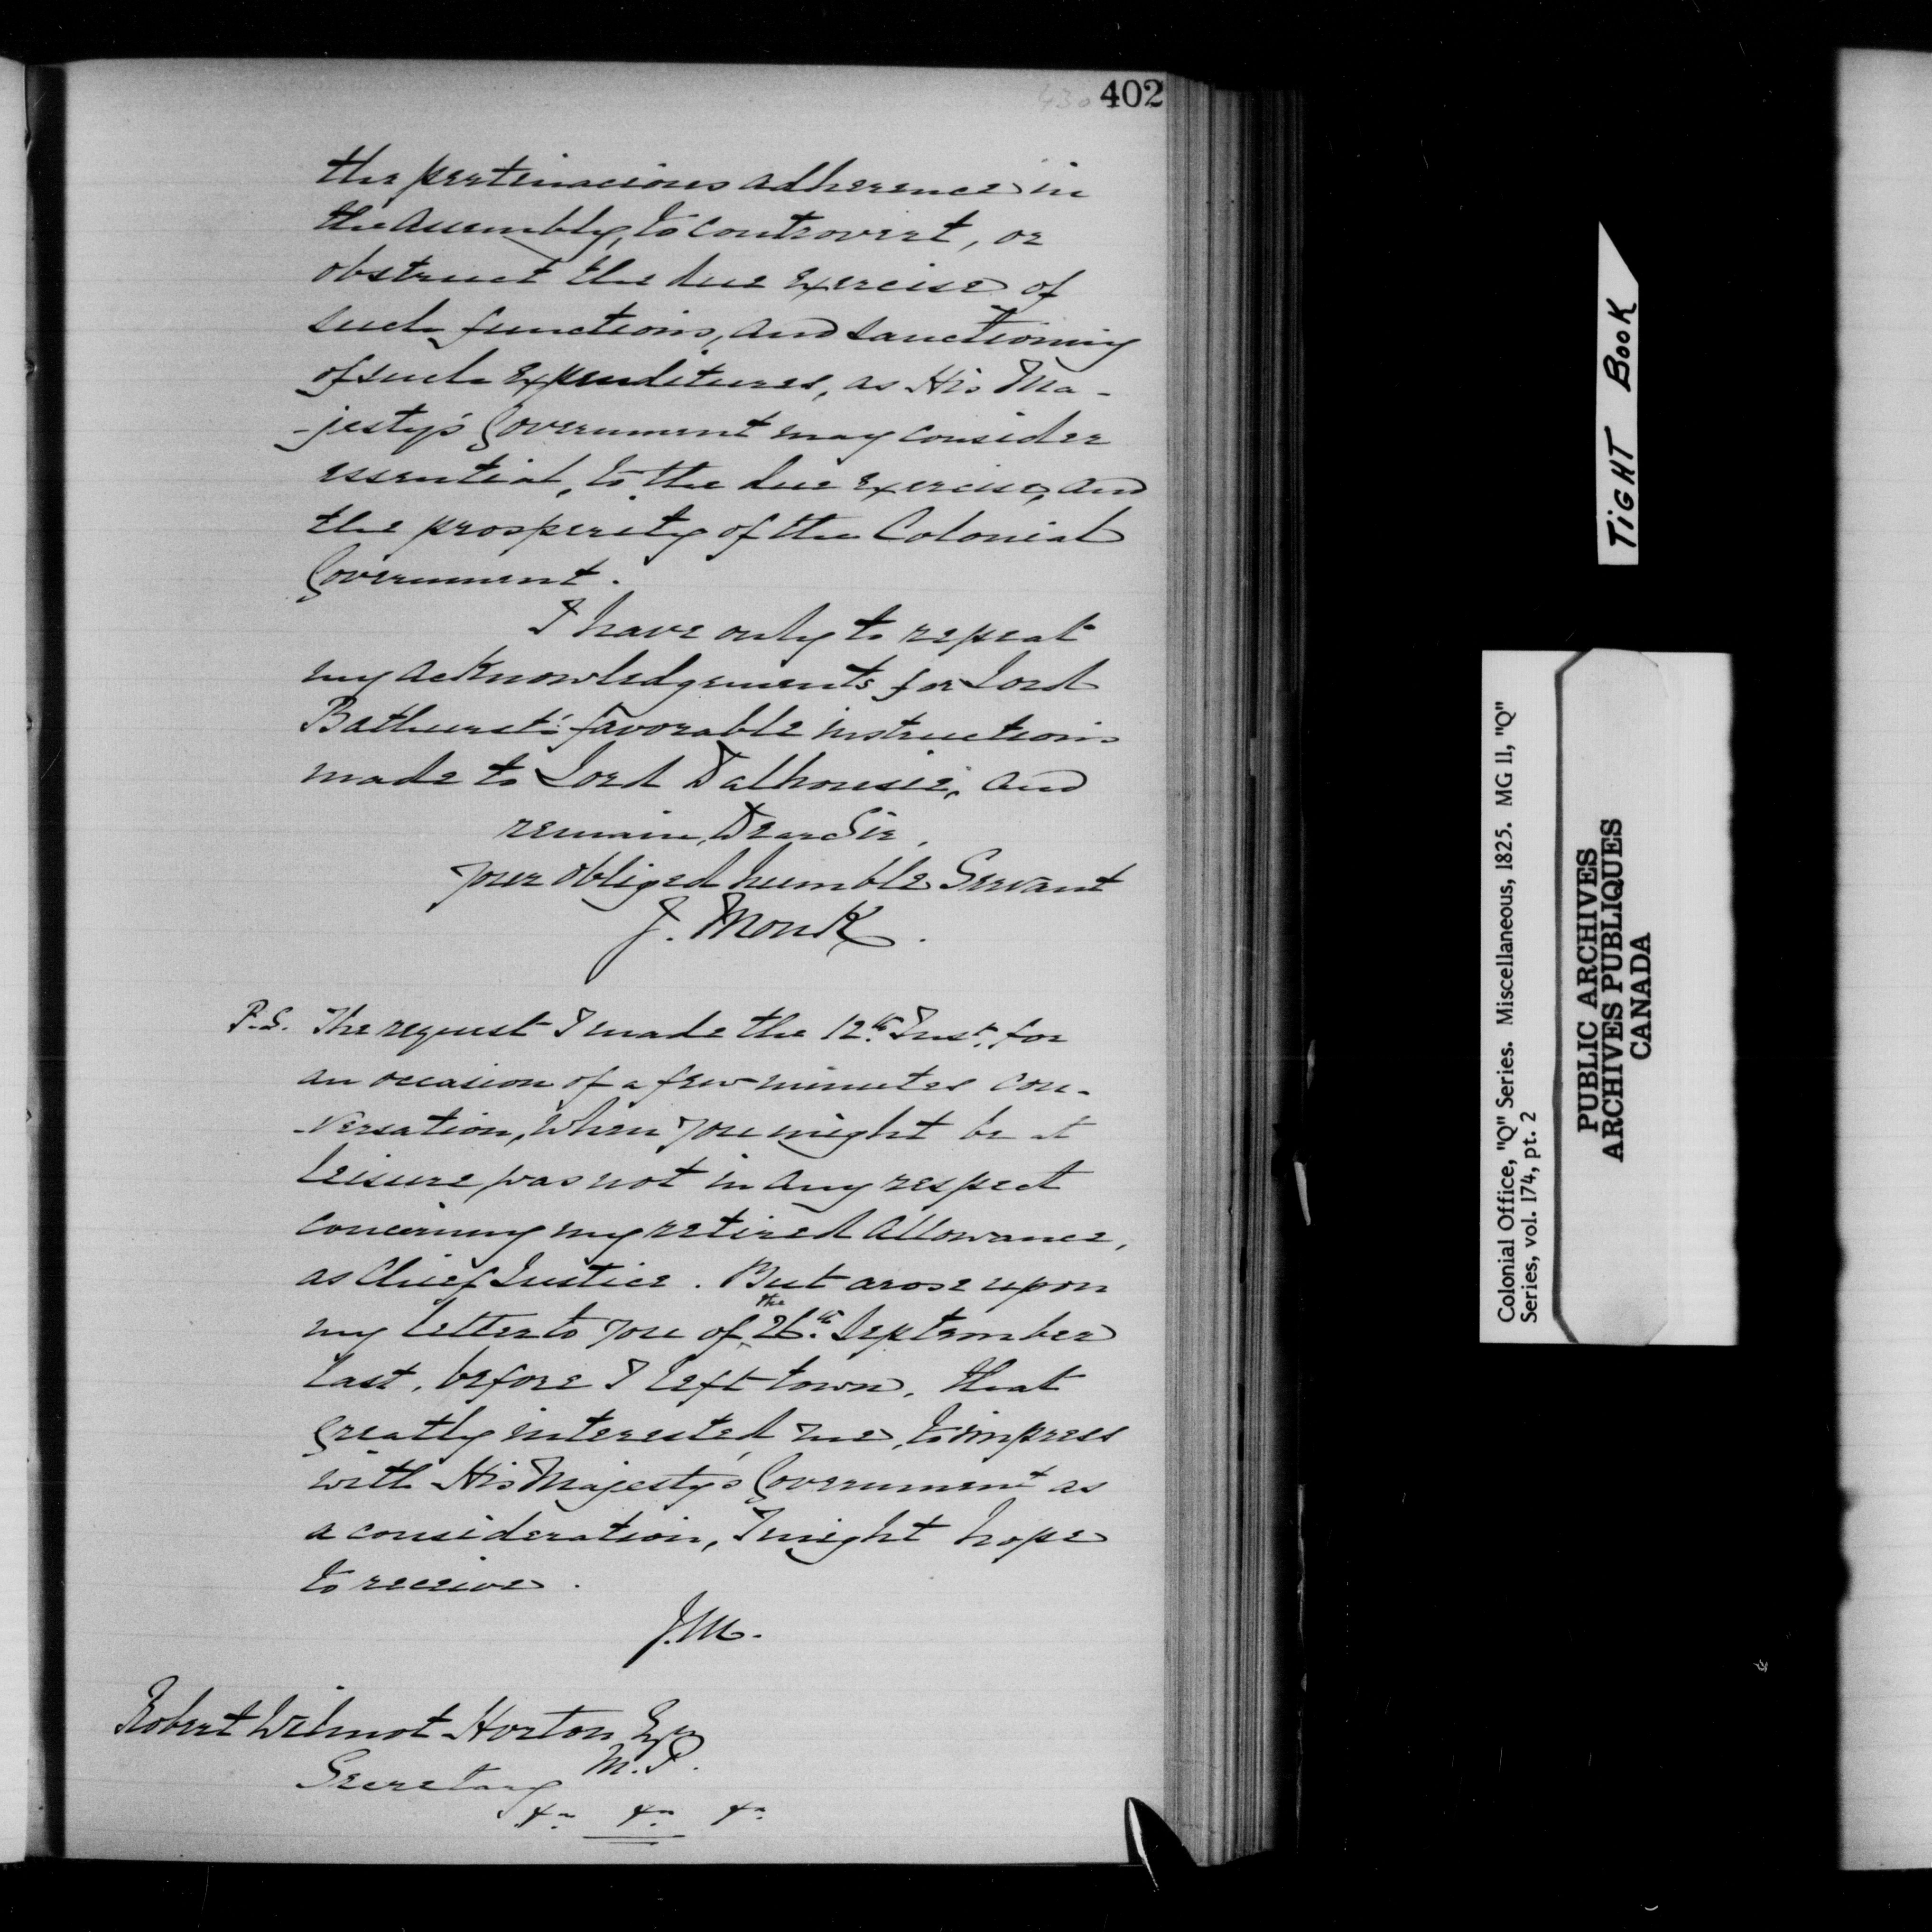 430 402
the pertinacious adherence in
the Assembly, to controvert, or
obstruct the due exercise of
such functions, and sanctioning
of such expenditures, as His Ma-
-jesty's Government may consider
essential, to the due exercise, and
the prosperity of the Colonial
Government.
I have only to repeat
my acknowledgements for Lord
Bathurst's favorable instructions
made to Lord Dalhousie, and
remain, Dear Sir,
your obliged humble Servant
J. Monk.
P.S. The request I made the 12th. Inst. for
an occasion of a few minutes con-
-versation, when you might be at
leisure, was not in any respect
concerning my retired allowance,
as Chief Justice. But arose upon
my letter to you of the 26th. September
last, before I left town, that
greatly interested, me, to impress
with His Majesty's Government as
a consideration, I might hope
to receive.
J.M.
Robert Wilmot Horton Esq
M.P.
Secretary
&c. &c. &c.
TIGHT BOOK
Colonial Office, "Q" Series. Miscellaneous, 1825. MG 11, "Q"
Series, vol. 174, pt. 2
PUBLIC ARCHIVES
ARCHIVES PUBLIQUES
CANADA